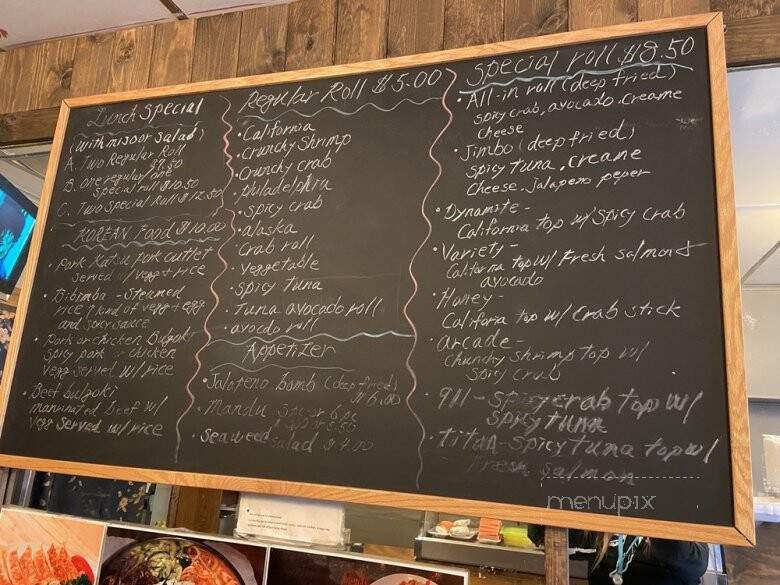 Lunch Special
(with miso or salad)
A. Two Regular Roll
$7.50
B. One regular/one
Special roll $10.50
C. Two Special Roll $12.50
KOREAN Food $10.00
· Pork Katsu pork cuttlet
Served w/ vegg + rice
· Bibimba - Steamed
rice 7 kind of vegg + egg
and spicy sauce
· Pork or chicken Bulgoki
Spicy pork or chicken
vegg served w/ rice
· Beef bulgoki
marinated beef w/
vegg Served w/ rice
Regular Roll $5.00
· California
· Crunchy Shrimp
· Crunchy crab
· philadelphia
· spicy crab
· alaska
· Crab roll
· Veggetable
· spicy tuna
· Tuna avocado roll
· avocdo roll
Appetizer
· Jalopeno bomb (deep fried)
$6.00
· Mandu 6 pc
$5.50
· seaweed salad $4.00
Special roll $8.50
· All-in roll (deep fried)
spicy crab, avocado, creame
cheese
· Jimbo (deep fried)
spicy tuna, creame
cheese, jalapeno peper
· Dynamite -
California top w/ spicy crab
· Variety -
California top w/ Fresh salmon +
avocado
· Honey -
Califoria top w/ Crab stick
· arcade -
Chunchy shrimp top w/
spicy crab
· 911 - spicy crab top w/
spicy tuna
· titan - spicy tuna top w/
Fresh salmon
menupix